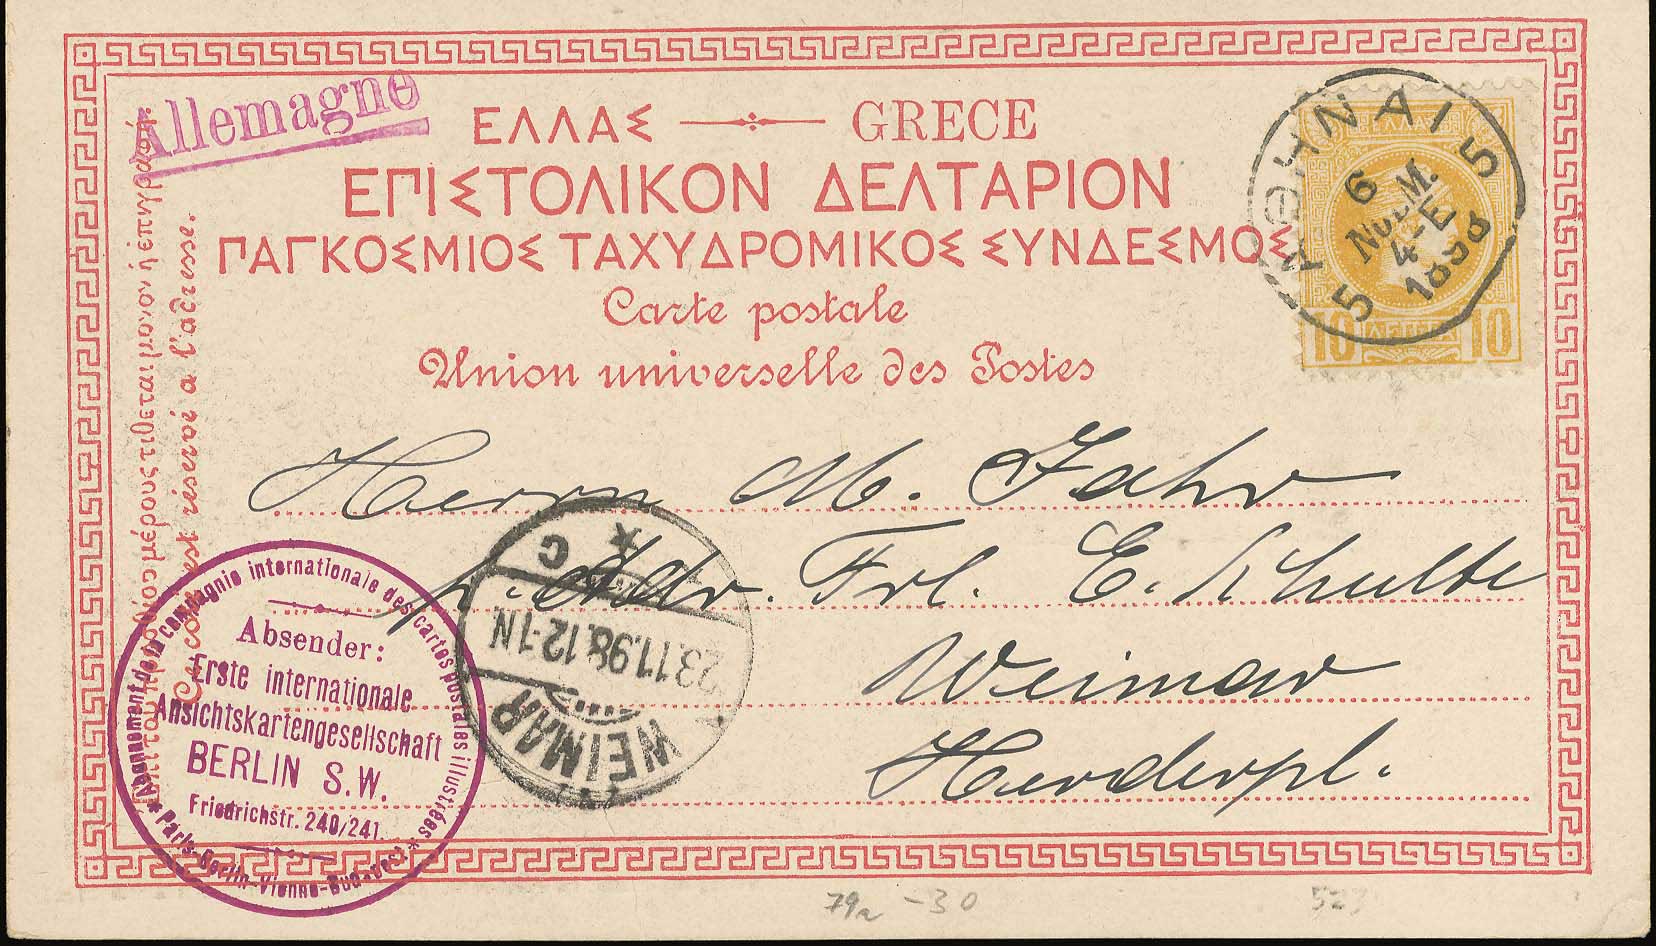 Allemagne
ΕΛΛΑΣ GRECE
ΕΠΙΣΤΟΛΙΚΟΝ ΔΕΛΤΑΡΙΟΝ
ΠΑΓΚΟΣΜΙΟΣ ΤΑΧΥΔΡΟΜΙΚΟΣ ΣΥΝΔΕΣΜΟΣ
Carte postale
Union universelle des Postes
μέρους τιθεται μονον ή επιγραφή.
Ce coté est réservé a l'adresse.
ΑΘΗΝΑΙ
5 5
6
ΝΟΕΜ.
4-Ε
1898
ΕΛΛΑΣ
10 ΛΕΠΤΑ 10
Herrn M. Jahr
p. Adr. Frl. E. Schulte
Weimar
Herderpl.
WEIMAR
23.11.98.12-1N
* C
Abonnement de la compagnie internationale des cartes postales illustrées
* Paris-Berlin-Vienne-Budapest *
Absender:
Erste internationale
Ansichtskartengesellschaft
BERLIN S.W.
Friedrichstr. 240/241.
79a -30